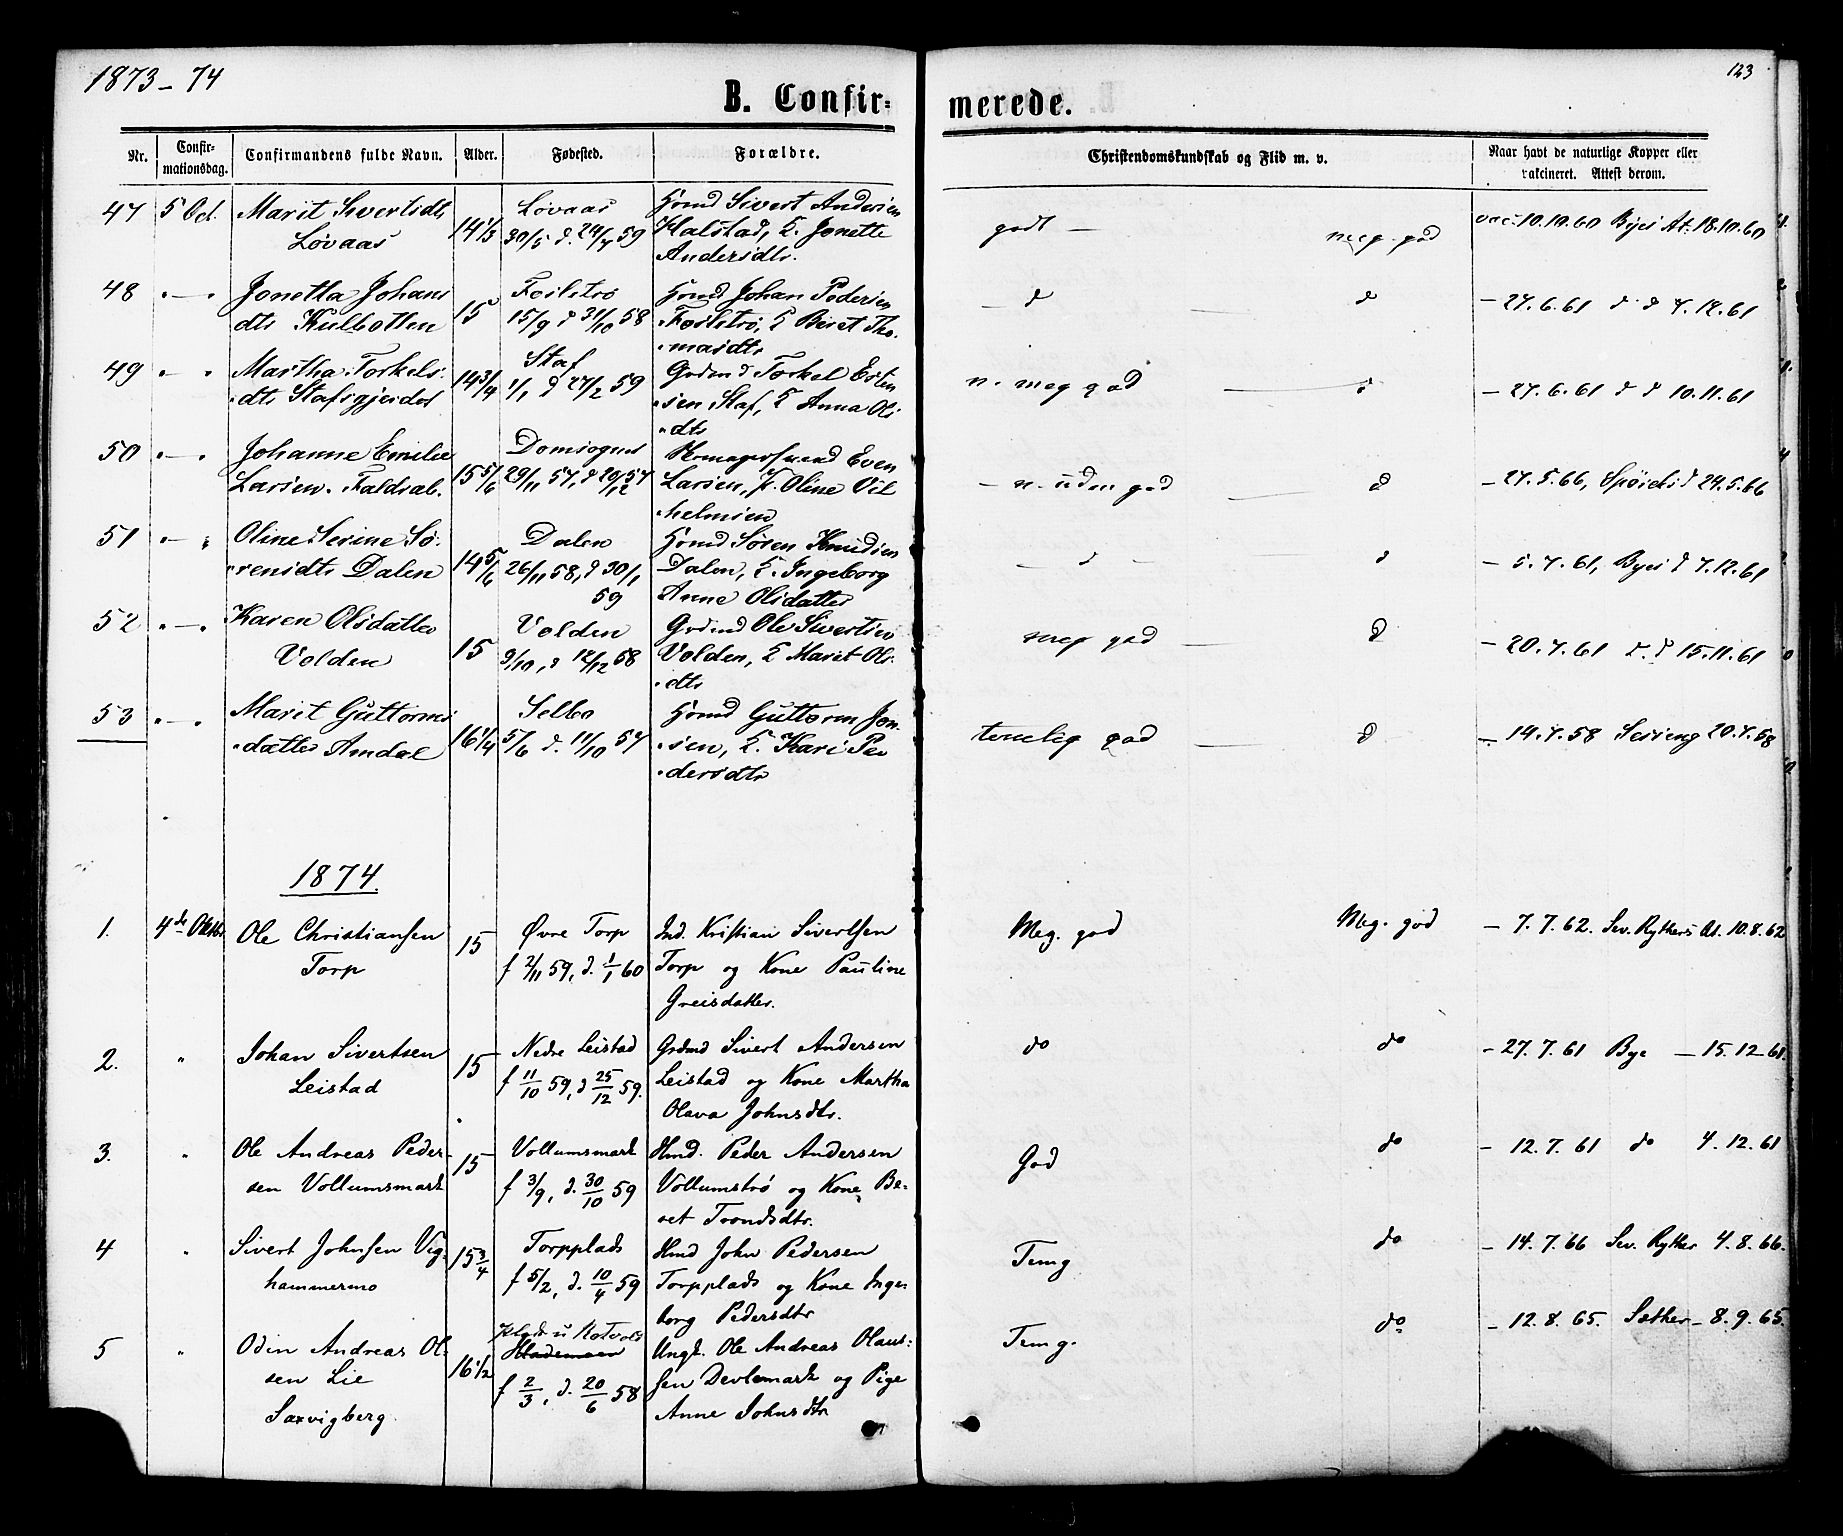 1873-74
123
B. Confir=
merede.
Nr.
Confir-
mationsdag.
Confirmandens fulde Navn.
Alder.
Fødested.
Forældre.
Christendomskundskab og Flid m. v.
Naar havt de naturlige Kopper eller
vakcineret. Attest derom.
47 5 Oct. Marit Sivertsdtr
Løvaas
14 1/3
Løvaas
30/5 d. 24/7 59
Hsmd Sivert Andersen
Halstad, K. Jonette
Andersdtr.
godt — meg. god
vac. 10.10.60 Byes At. 18.10.60
48 " — " Jonetta Johans
dtr Kulbotten
15
15/9 d 31/10 58
Hsmd Johan Pedersen
K Beret Tho-
masdtr
— d d
— 27.6.61 d d 7.12.61
49 " — " Martha Torkels-
dtr Stafsgjerdet
14 3/4
Staf
1/1 d 27/2 59
Gdmd Torkel Esten
sen Staf, K Anna Ols
dtr
n. meg god — d
— 27.6.61 d d 10.11.61
50 " — " Johanne Emilie
Larsen.
15 5/6
Domsognet
29/11 57, d 20/12 57
Even
Larsen, K. Oline Vil
helmsen
— n. uden god — d
— 27.5.66, d 29.5.66
51 " — " Oline Serine Sø-
rensdtr Dalen
14 5/6
Dalen
26/11 58, d 30/1
59
Hsmd Søren Knudsen
Dalen, K. Ingeborg
Anne Olsdatter
— d — d
— 5.7.61, Byes d 7.12.61
52 " — " Karen Olsdatter
Volden
15
Volden
9/10, d 12/12 58
Gdmd Ole Sivertsen
Volden, K Marit Ols-
dtr
meg god — d
— 20.7.61 d. d 15.11.61
53 " — " Marit Guttorms
datter Amdal
16 1/4
Selbo
5/6 d. 11/10 57
Hsmd Guttorm Jon-
sen, K. Kari Pe
dersdtr
temelig god — d
— 14.7.58 20.7.58
1874.
1. 4de Oktbr. Ole Christiansen
Torp
15
Øvre Torp
f 2/11 59, d. 1/1 60
Ind. Kristian Sivertsen
Torp og Kone Pauline
Greisdatter.
Meg. god Meg. god
— 7.7.62. Sev. Rythers At. 10.8.62
2. " Johan Sivertsen
Leistad
15
Nedre Leistad
f 11/10 59, d 25/12 59.
Grdmd Sivert Andersen
Leistad og Kone Martha
Olava Johnsdtr.
do do
- 27.7.61 Bye — 15.12.61.
3. " Ole Andreas Peder-
sen Vollumsmark
15
Vollumsmark
f 3/9, d. 30/10 59
Hmd. Peder Andersen
Vollumstrø og Kone, Be-
ret Trondsdtr.
God do
- 12.7.61 do 4.12.61
4 " Sivert Johnsen Vig-
hammermo
15 3/4
Torpplads
f 5/2, d. 10/4 59
Hmd John Pedersen
Torpplads og Kone Inge-
borg Pedersdtr
Temg do
- 14.7.66 Sev. Ryther 4.8.66.
5 " Odin Andreas Ol-
sen Lie
Saxvigberg.
16 1/2
f 2/3, d. 20/6 58
Ungk. Ole Andreas Olaus-
sen Devlemark og Pige
Anne Johnsdtr
Temg. do
- 12.8.65. Sæther - 8.9.65.